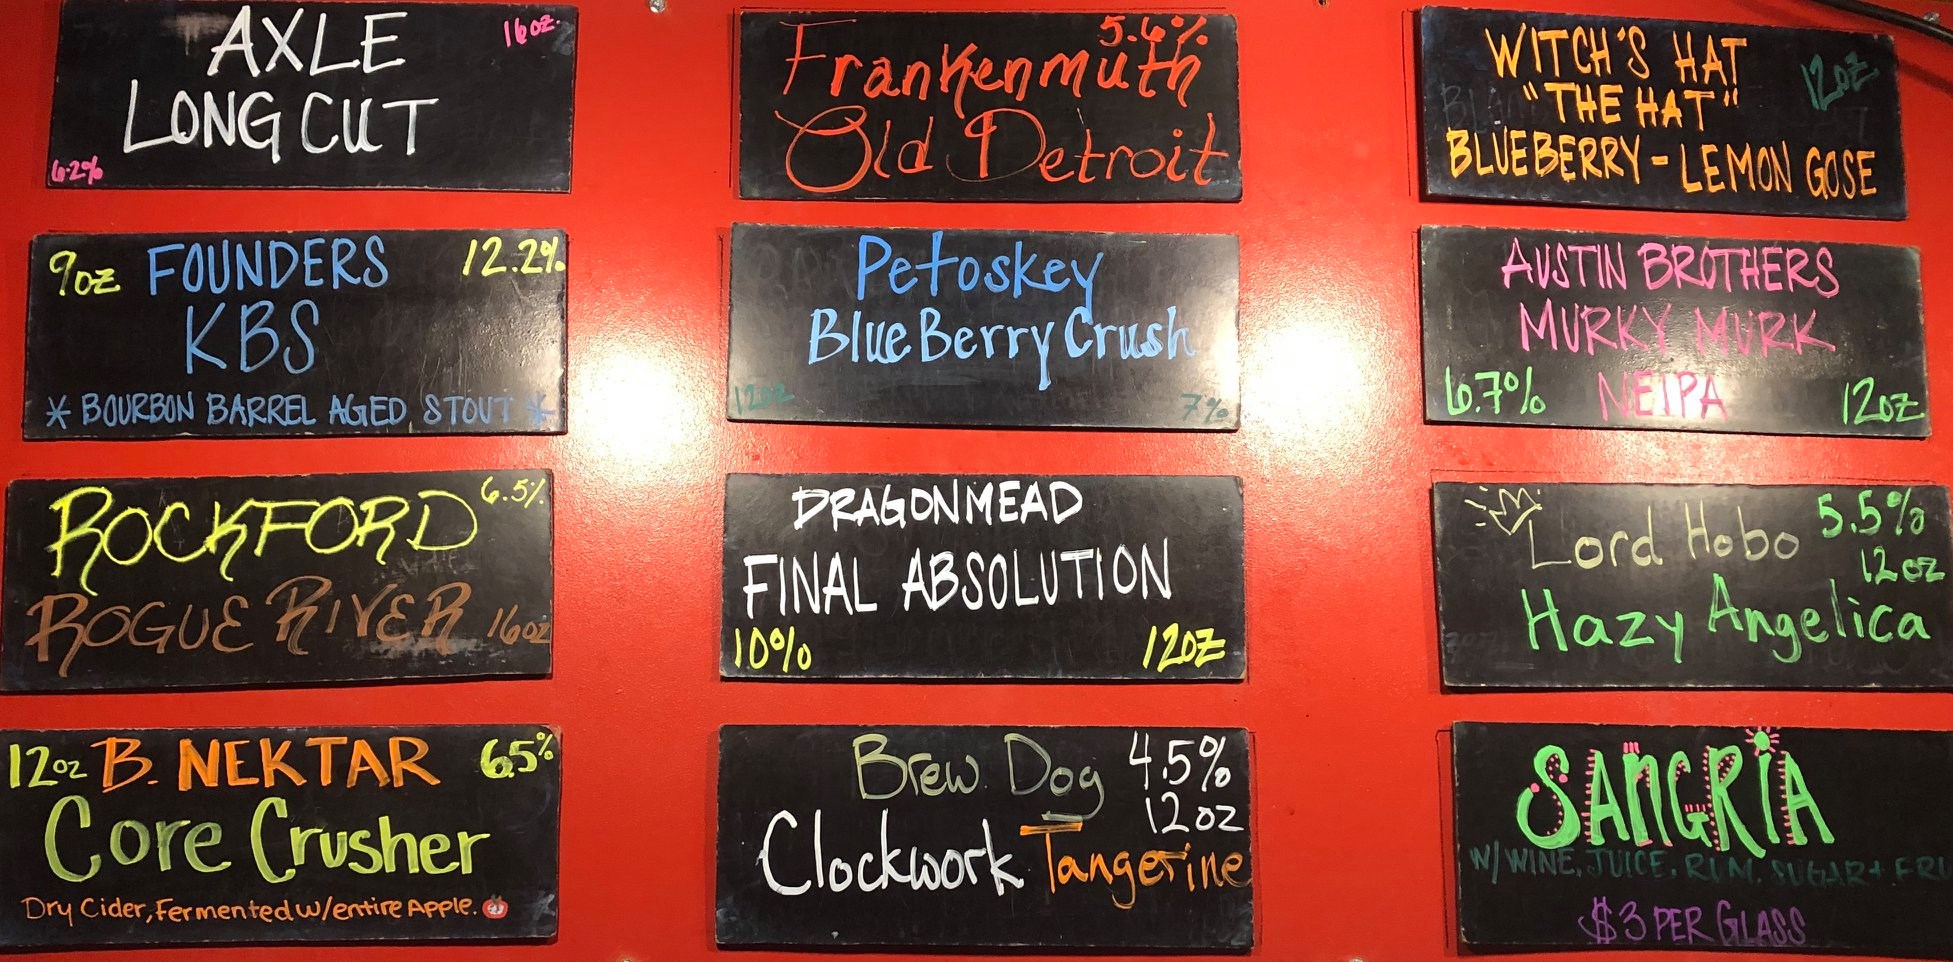 AXLE 16oz
LONG CUT
6.2%
5.6%
Frankenmuth
Old Detroit
WITCH'S HAT
"THE HAT" 12oz
BLUEBERRY - LEMON GOSE
9oz FOUNDERS 12.2%
KBS
* BOURBON BARREL AGED STOUT *
Petoskey
BlueBerry Crush
12oz 7%
AUSTIN BROTHERS
MURKY MURK
6.7% NEIPA 12oz
ROCKFORD 6.5%
ROGUE RIVER 16oz
DRAGONMEAD
FINAL ABSOLUTION
10% 12oz
Lord Hobo 5.5%
12oz
Hazy Angelica
12oz B. NEKTAR 6.5%
Core Crusher
Dry Cider, Fermented w/entire Apple.
Brew Dog 4.5%
12oz
Clockwork Tangerine
SANGRIA
W/ WINE, JUICE, RUM, SUGAR + FRU
$3 PER GLASS